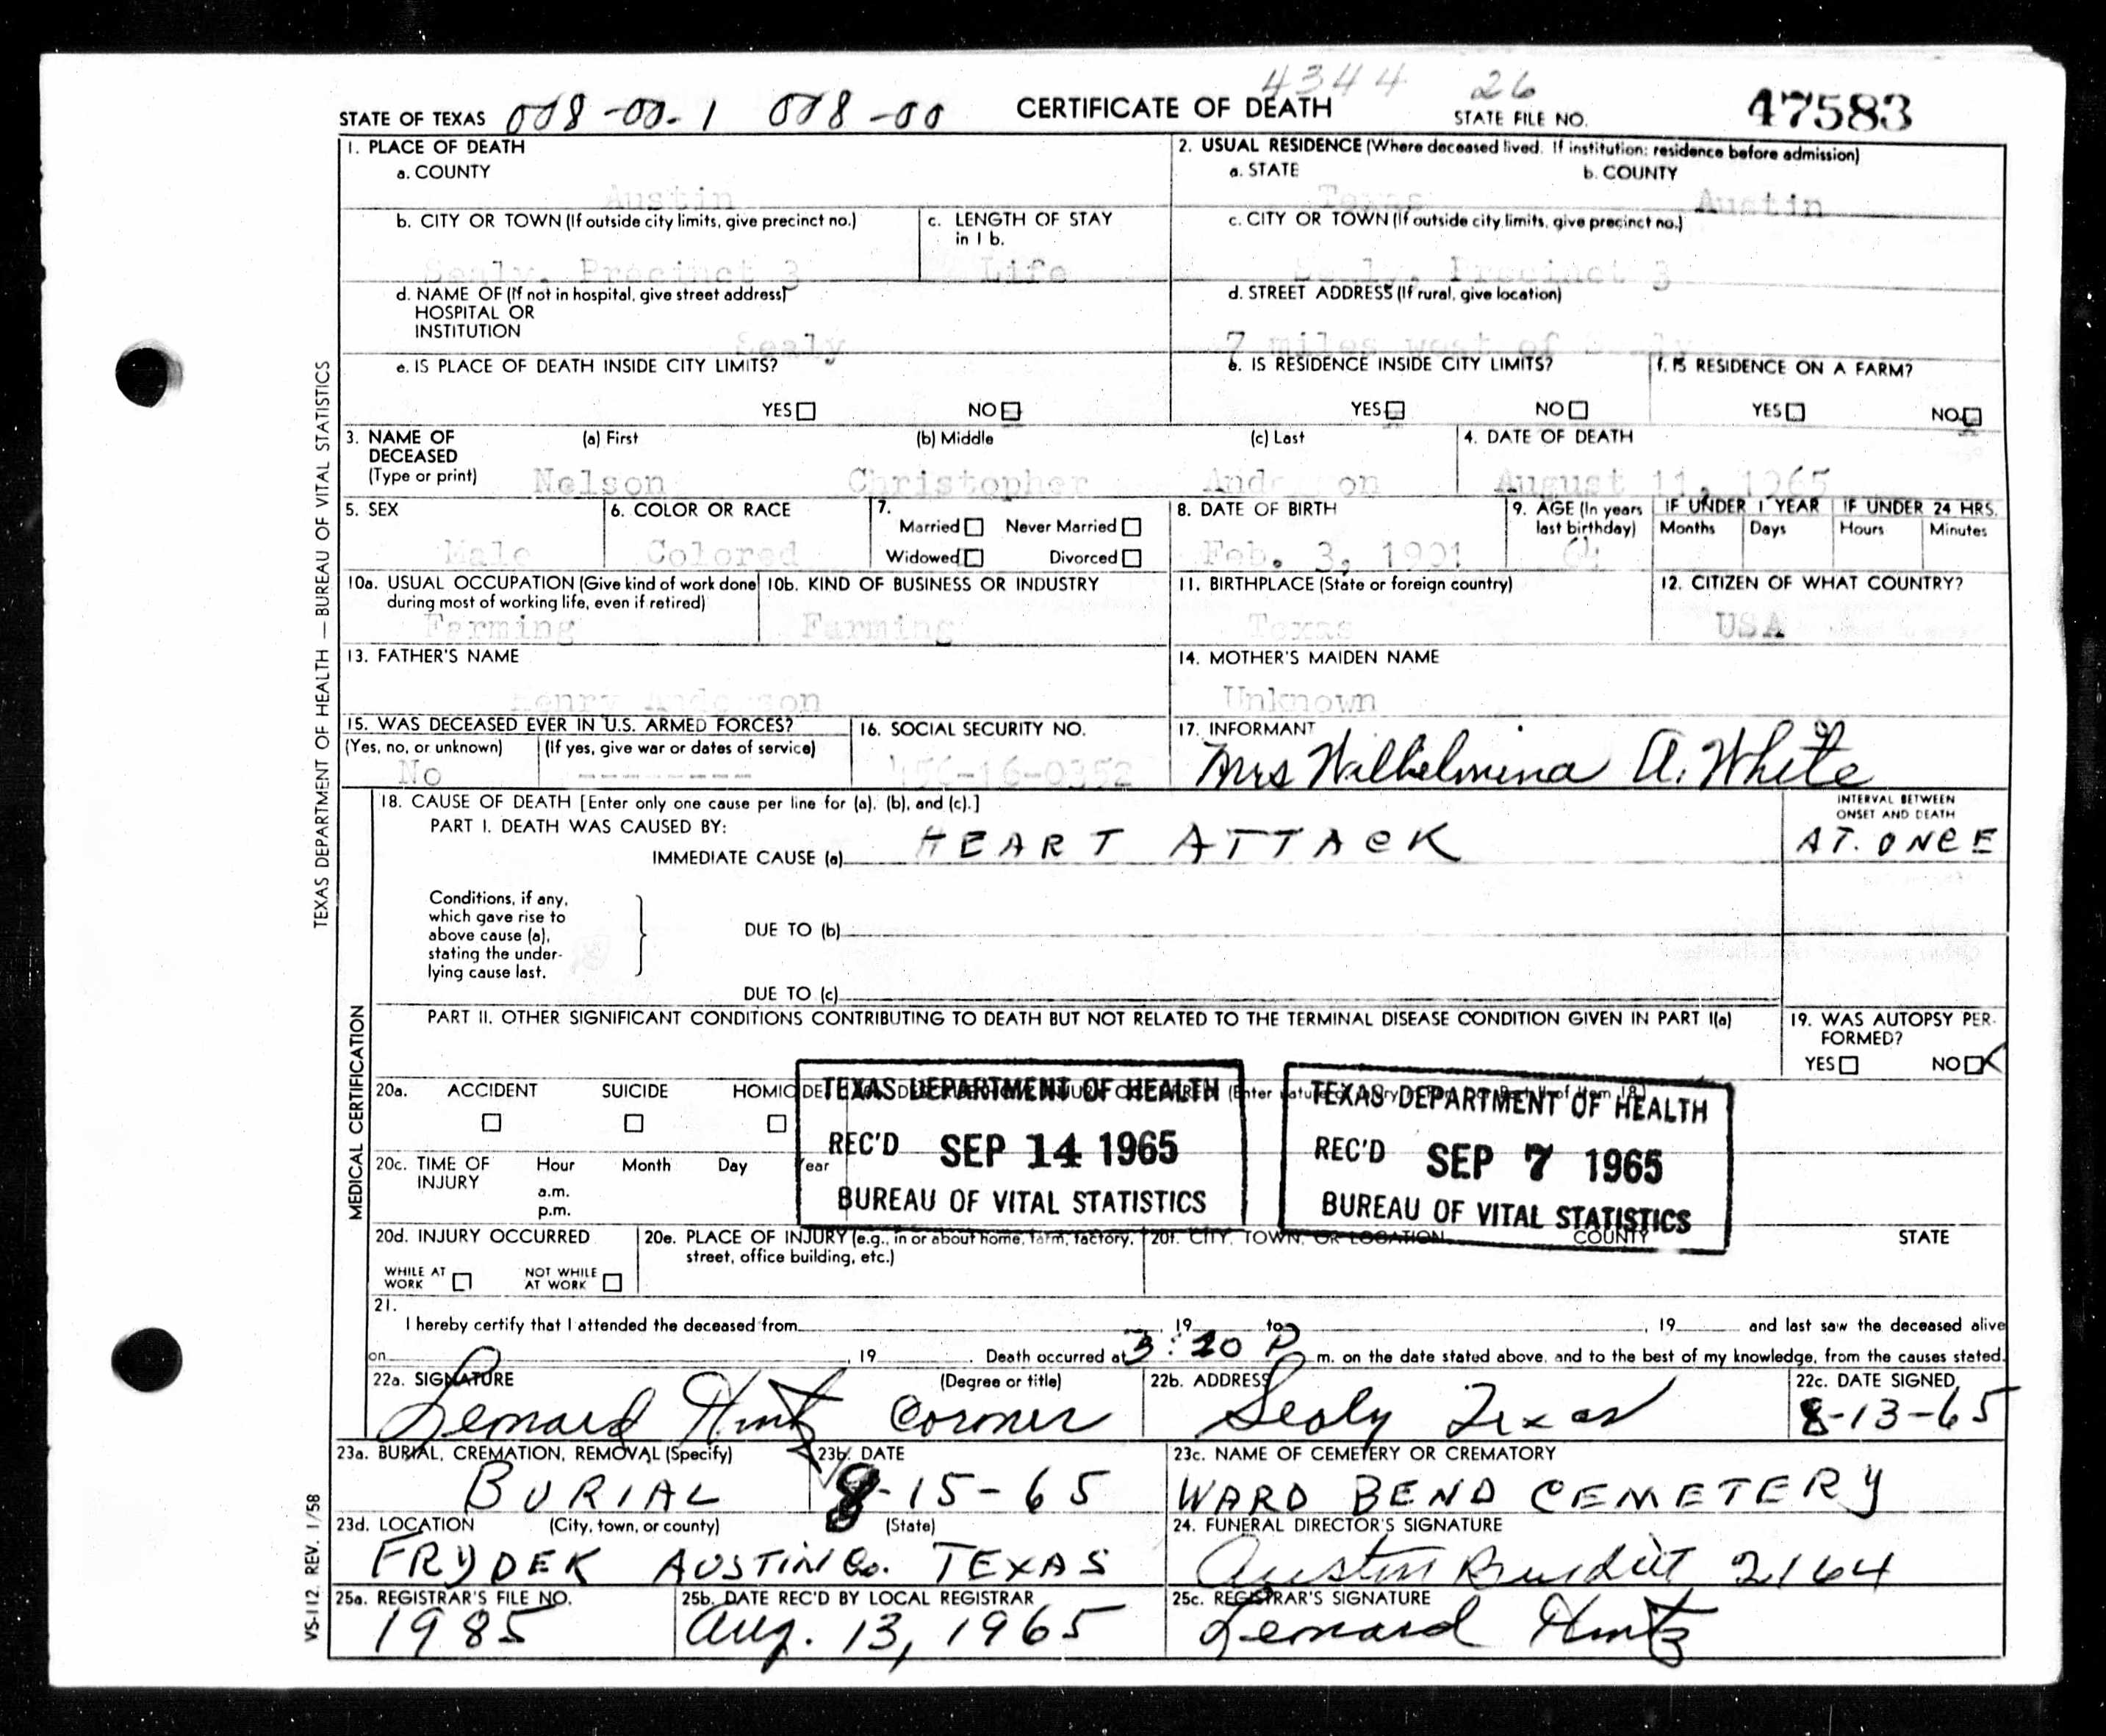 4344 26
STATE OF TEXAS 008-00-1 008-00 CERTIFICATE OF DEATH STATE FILE NO. 47583
1. PLACE OF DEATH
a. COUNTY
Austin
2. USUAL RESIDENCE (Where deceased lived. If institution: residence before admission)
a. STATE b. COUNTY
Texas Austin
b. CITY OR TOWN (If outside city limits, give precinct no.)
Sealy, Precinct 3
c. LENGTH OF STAY
in 1 b.
Life
c. CITY OR TOWN (If outside city limits, give precinct no.)
Sealy, Precinct 3
d. NAME OF (If not in hospital, give street address)
HOSPITAL OR
INSTITUTION
Sealy
d. STREET ADDRESS (If rural, give location)
7 miles west of Sealy
e. IS PLACE OF DEATH INSIDE CITY LIMITS?
YES NO
e. IS RESIDENCE INSIDE CITY LIMITS?
YES NO
f. IS RESIDENCE ON A FARM?
YES NO
3. NAME OF
DECEASED
(Type or print)
(a) First (b) Middle (c) Last
Nelson Christopher Anderson
4. DATE OF DEATH
August 11, 1965
5. SEX
Male
6. COLOR OR RACE
Colored
7.
Married Never Married
Widowed Divorced
8. DATE OF BIRTH
Feb. 3, 1901
9. AGE (In years
last birthday)
64
IF UNDER 1 YEAR IF UNDER 24 HRS.
Months Days Hours Minutes
10a. USUAL OCCUPATION (Give kind of work done
during most of working life, even if retired)
Farming
10b. KIND OF BUSINESS OR INDUSTRY
Farming
11. BIRTHPLACE (State or foreign country)
Texas
12. CITIZEN OF WHAT COUNTRY?
USA
13. FATHER'S NAME
Henry Anderson
14. MOTHER'S MAIDEN NAME
Unknown
15. WAS DECEASED EVER IN U.S. ARMED FORCES?
(Yes, no, or unknown) (If yes, give war or dates of service)
No ---------
16. SOCIAL SECURITY NO.
456-16-0352
17. INFORMANT
Mrs Wilhelmina A. White
18. CAUSE OF DEATH [Enter only one cause per line for (a), (b), and (c).]
PART I. DEATH WAS CAUSED BY:
IMMEDIATE CAUSE (a) HEART ATTACK
INTERVAL BETWEEN
ONSET AND DEATH
AT. ONCE
Conditions, if any,
which gave rise to
above cause (a),
stating the under-
lying cause last.
DUE TO (b)
DUE TO (c)
PART II. OTHER SIGNIFICANT CONDITIONS CONTRIBUTING TO DEATH BUT NOT RELATED TO THE TERMINAL DISEASE CONDITION GIVEN IN PART I(a)
19. WAS AUTOPSY PER-
FORMED?
YES NO X
20a. ACCIDENT SUICIDE HOMICIDE
(Enter nature of injury
TEXAS DEPARTMENT OF HEALTH
REC'D SEP 14 1965
BUREAU OF VITAL STATISTICS
TEXAS DEPARTMENT OF HEALTH
REC'D SEP 7 1965
BUREAU OF VITAL STATISTICS
20c. TIME OF
INJURY
Hour Month Day Year
a.m.
p.m.
20d. INJURY OCCURRED
WHILE AT
WORK
NOT WHILE
AT WORK
20e. PLACE OF INJURY (e.g., in or about home, farm, factory,
street, office building, etc.)
20f. CITY, TOWN, OR LOCATION COUNTY STATE
21.
I hereby certify that I attended the deceased from , 19 to , 19 and last saw the deceased alive
on , 19 . Death occurred at 3:20 P m. on the date stated above, and to the best of my knowledge, from the causes stated.
22a. SIGNATURE (Degree or title)
Lemard Hintz Coroner
22b. ADDRESS
Sealy Texas
22c. DATE SIGNED
8-13-65
23a. BURIAL, CREMATION, REMOVAL (Specify)
BURIAL
23b. DATE
8-15-65
23c. NAME OF CEMETERY OR CREMATORY
WARD BEND CEMETERY
23d. LOCATION (City, town, or county) (State)
FRYDEK AUSTIN Co. TEXAS
24. FUNERAL DIRECTOR'S SIGNATURE
Austin Burditt 2164
25a. REGISTRAR'S FILE NO.
1985
25b. DATE REC'D BY LOCAL REGISTRAR
Aug. 13, 1965
25c. REGISTRAR'S SIGNATURE
Lemard Hintz
TEXAS DEPARTMENT OF HEALTH — BUREAU OF VITAL STATISTICS
MEDICAL CERTIFICATION
VS-112 REV. 1/58